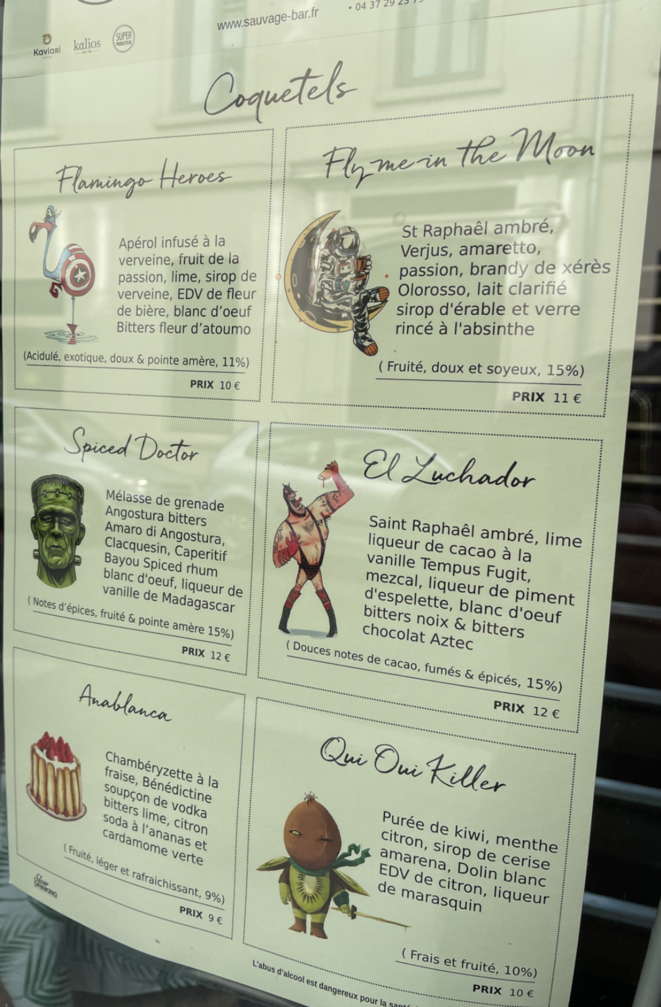 www.sauvage-bar.fr
• 04 37 29 23
Kaviari
kalios
SUPER
Coquetels
Flamingo Heroes
Apérol infusé à la
verveine, fruit de la
passion, lime, sirop de
verveine, EDV de fleur
de bière, blanc d'oeuf
Bitters fleur d'atoumo
(Acidulé, exotique, doux & pointe amère, 11%)
PRIX 10 €
Fly me in the Moon
St Raphaêl ambré,
Verjus, amaretto,
passion, brandy de xérès
Olorosso, lait clarifié
sirop d'érable et verre
rincé à l'absinthe
( Fruité, doux et soyeux, 15%)
PRIX 11 €
Spiced Doctor
Mélasse de grenade
Angostura bitters
Amaro di Angostura,
Clacquesin, Caperitif
Bayou Spiced rhum
blanc d'oeuf, liqueur de
vanille de Madagascar
( Notes d'épices, fruité & pointe amère 15%)
PRIX 12 €
El Luchador
Saint Raphaêl ambré, lime
liqueur de cacao à la
vanille Tempus Fugit,
mezcal, liqueur de piment
d'espelette, blanc d'oeuf
bitters noix & bitters
chocolat Aztec
( Douces notes de cacao, fumés & épicés, 15%)
PRIX 12 €
Anablanca
Chambéryzette à la
fraise, Bénédictine
soupçon de vodka
bitters lime, citron
soda à l'ananas et
cardamome verte
( Fruité, léger et rafraichissant, 9%)
PRIX 9 €
Qui Oui Killer
Purée de kiwi, menthe
citron, sirop de cerise
amarena, Dolin blanc
EDV de citron, liqueur
de marasquin
( Frais et fruité, 10%)
PRIX 10 €
Slow
DRINKING
L'abus d'alcool est dangereux pour la